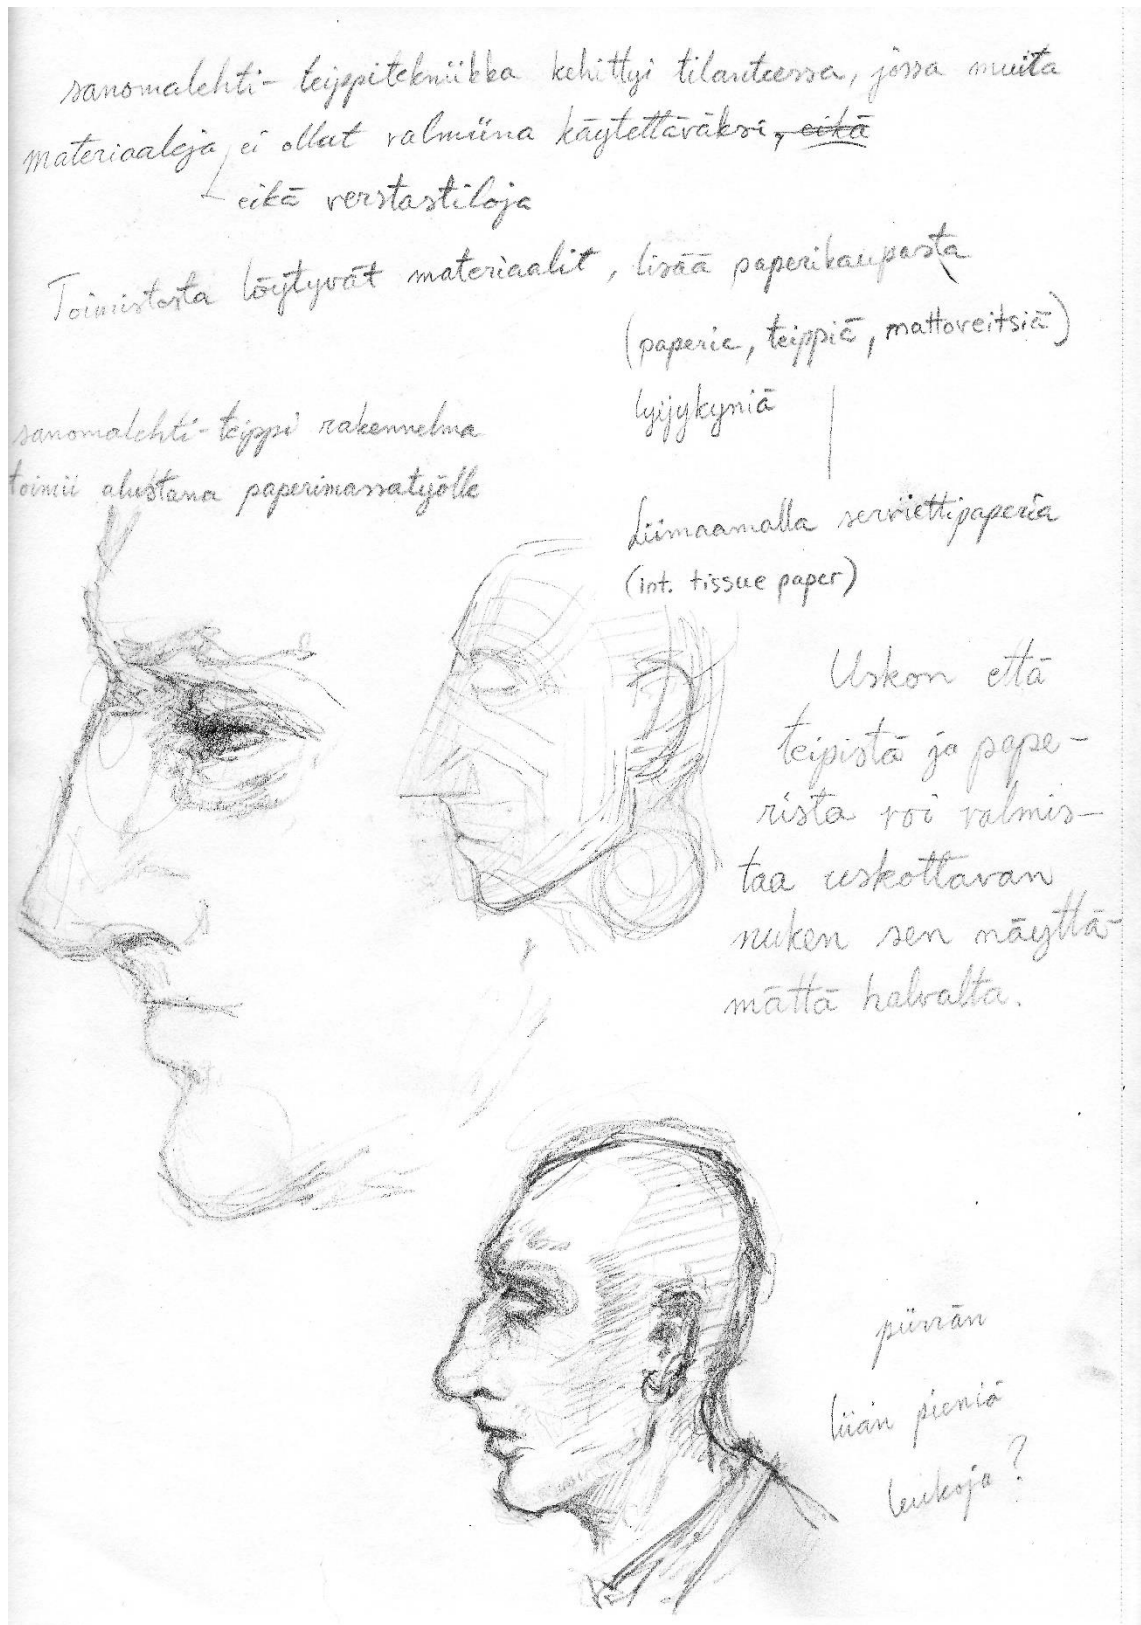 sanomalehti- teippitekniikka kehittyi tilanteessa, jossa muita
materiaaleja ei ollut valmiina käytettäväksi, eikä
eikä verstastiloja
Toimistosta löytyvät materiaalit, lisää paperikaupasta
(paperia, teippiä, mattoveitsiä)
lyijykyniä
sanomalehti-teippi rakennelma
toimii alustana paperimassatyölle
Liimaamalla serviettipaperia
(int. tissue paper)
Uskon että
teipistä ja pape-
rista voi valmis-
taa uskottavan
nuken sen näyttä-
mättä halvalta.
piirrän
liian pieniä
leukoja?